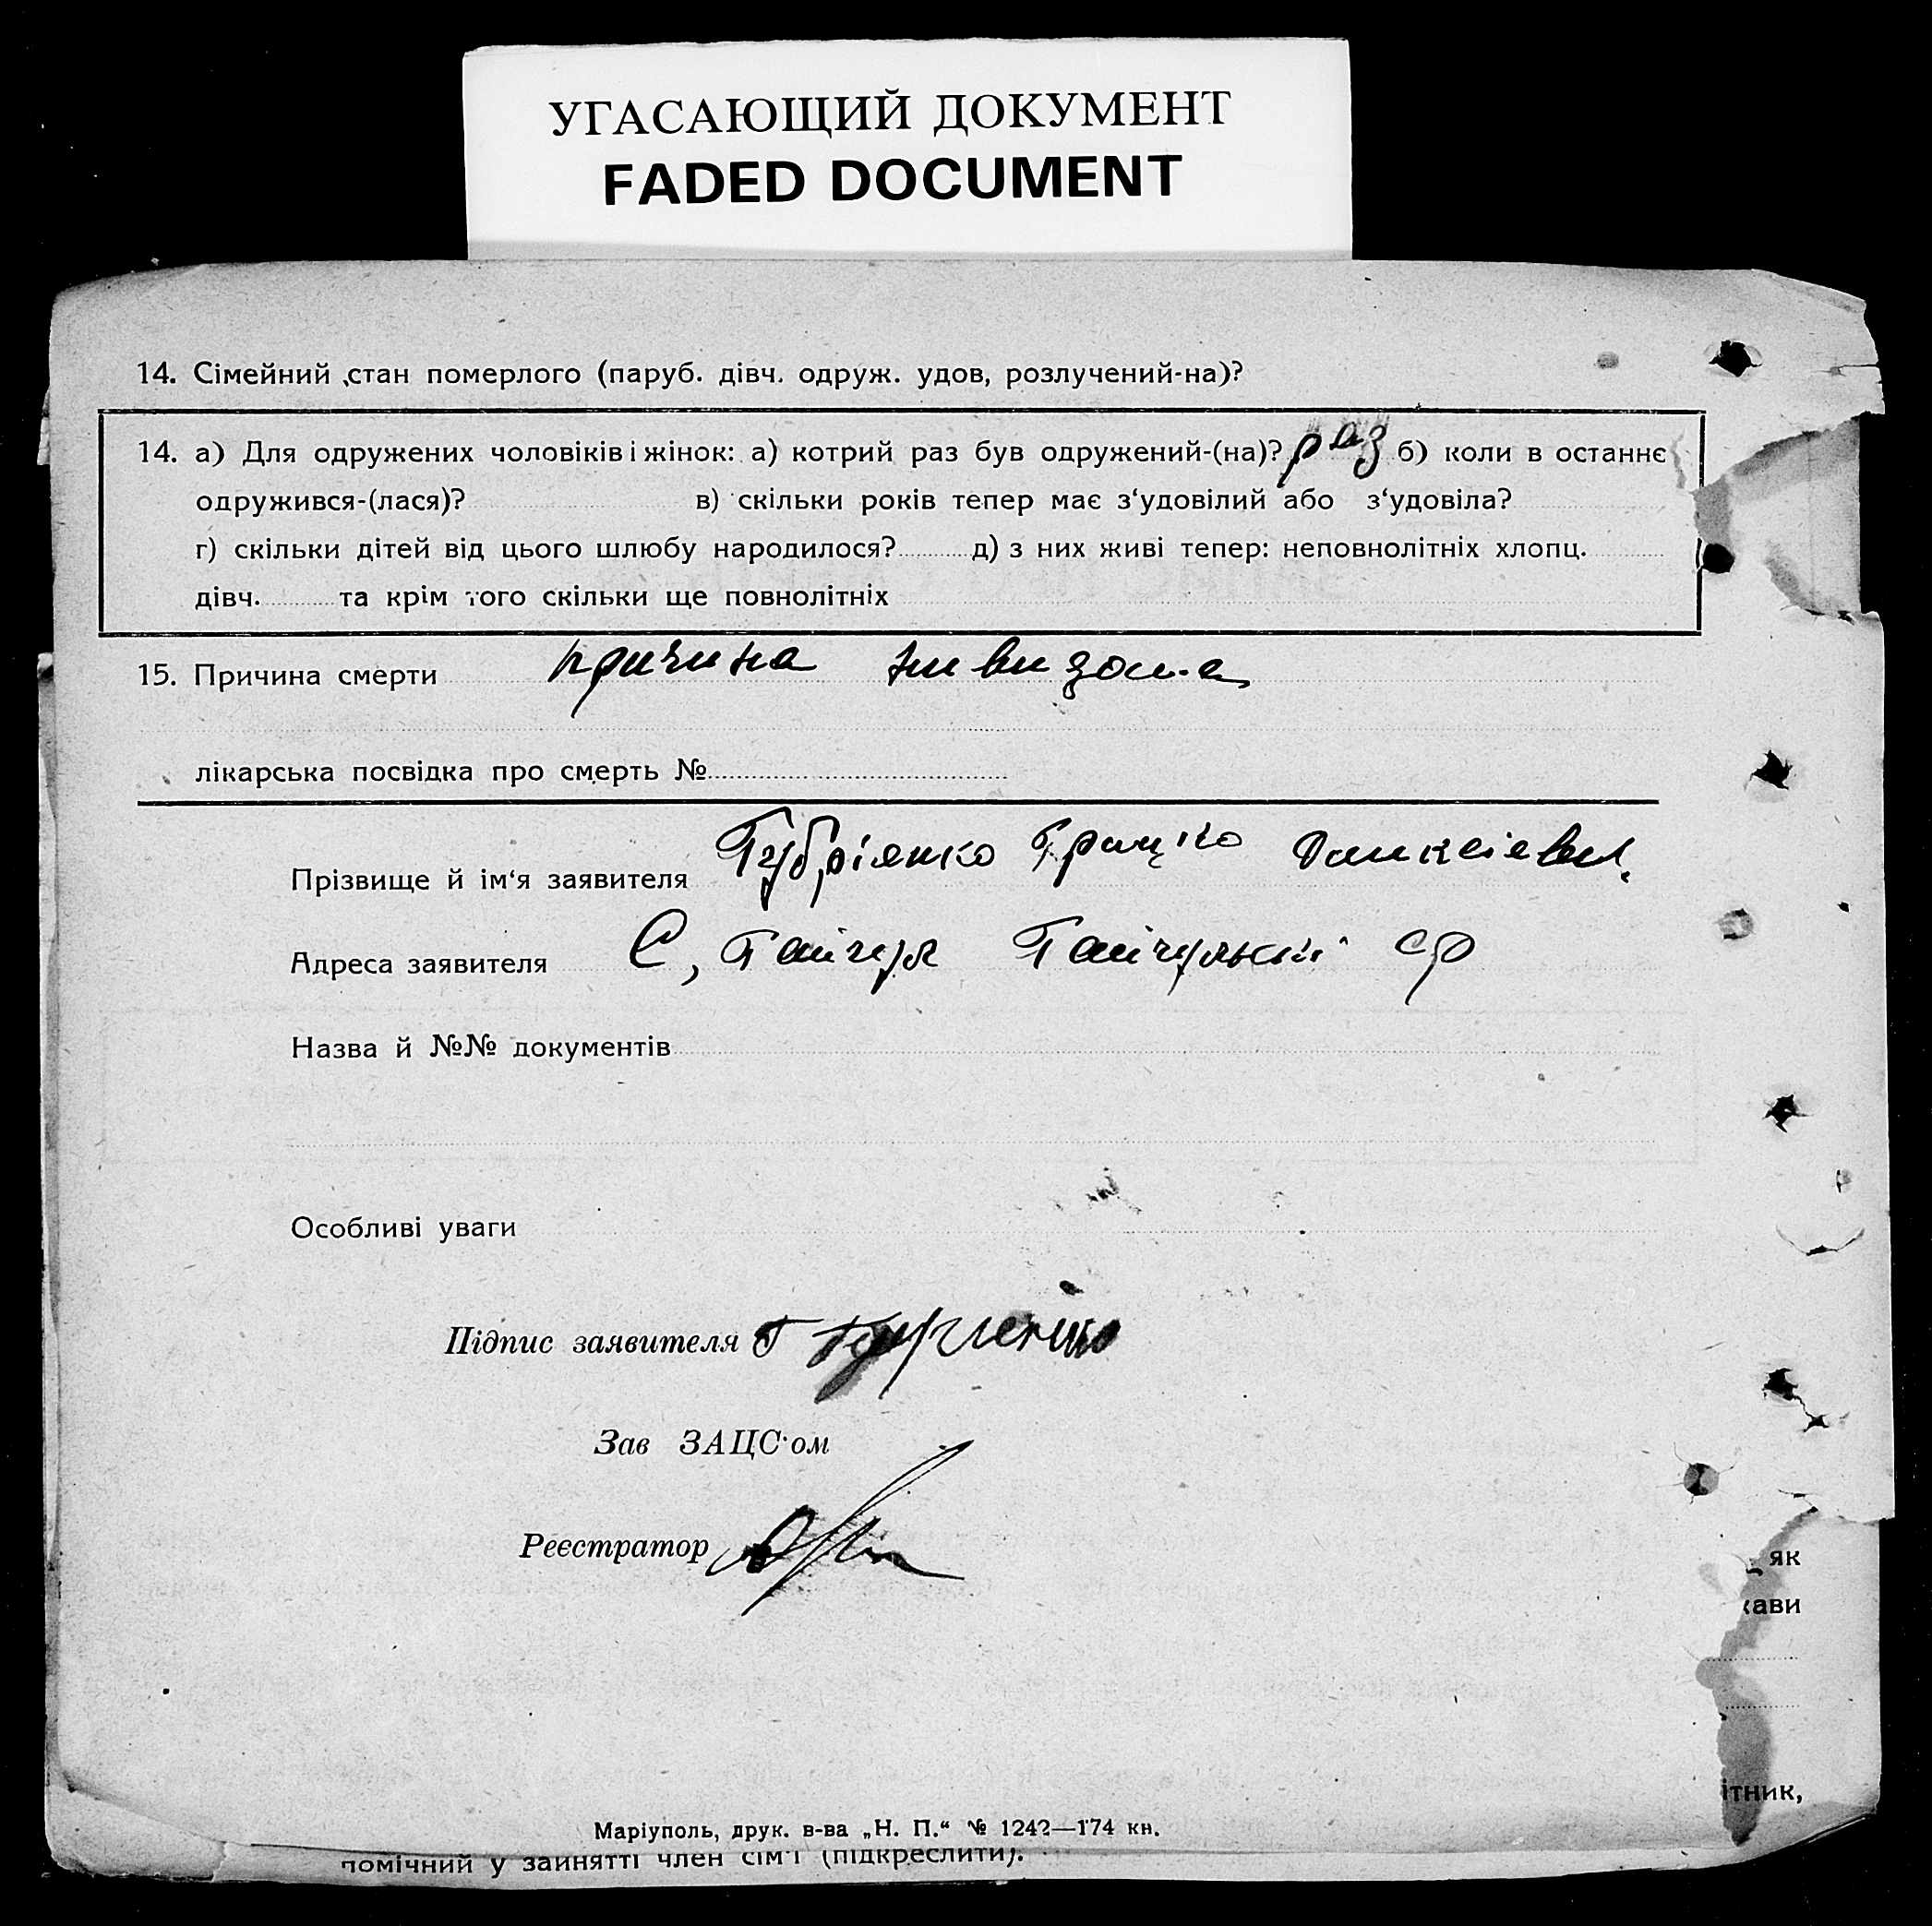 УГАСАЮЩИЙ ДОКУМЕНТ
FADED DOCUMENT
14. Сімейний стан померлого (паруб. дівч. одруж. удов, розлучений-на)?
14. а) Для одружених чоловіків і жінок: а) котрий раз був одружений-(на)? раз б) коли в останнє
одружився-(лася)? в) скільки років тепер має з‘удовілий або з‘удовіла?
г) скільки дітей від цього шлюбу народилося? д) з них живі тепер: неповнолітніх хлопц.
дівч. та крім того скільки ще повнолітніх
15. Причина смерти причина
лікарська посвідка про смерть №
Прізвище й ім‘я заявителя Грицко
Адреса заявителя С, Гайчул Гайчулький ср
Назва й №№ документів
Особливі уваги
Підпис заявителя Г
Зав ЗАЦС·ом
Реєстратор
як
жави
ітник,
Маріуполь, друк. в-ва „Н. П.“ № 1242—174 кн.
помічний у зайнятті член сім'ї (підкреслити).